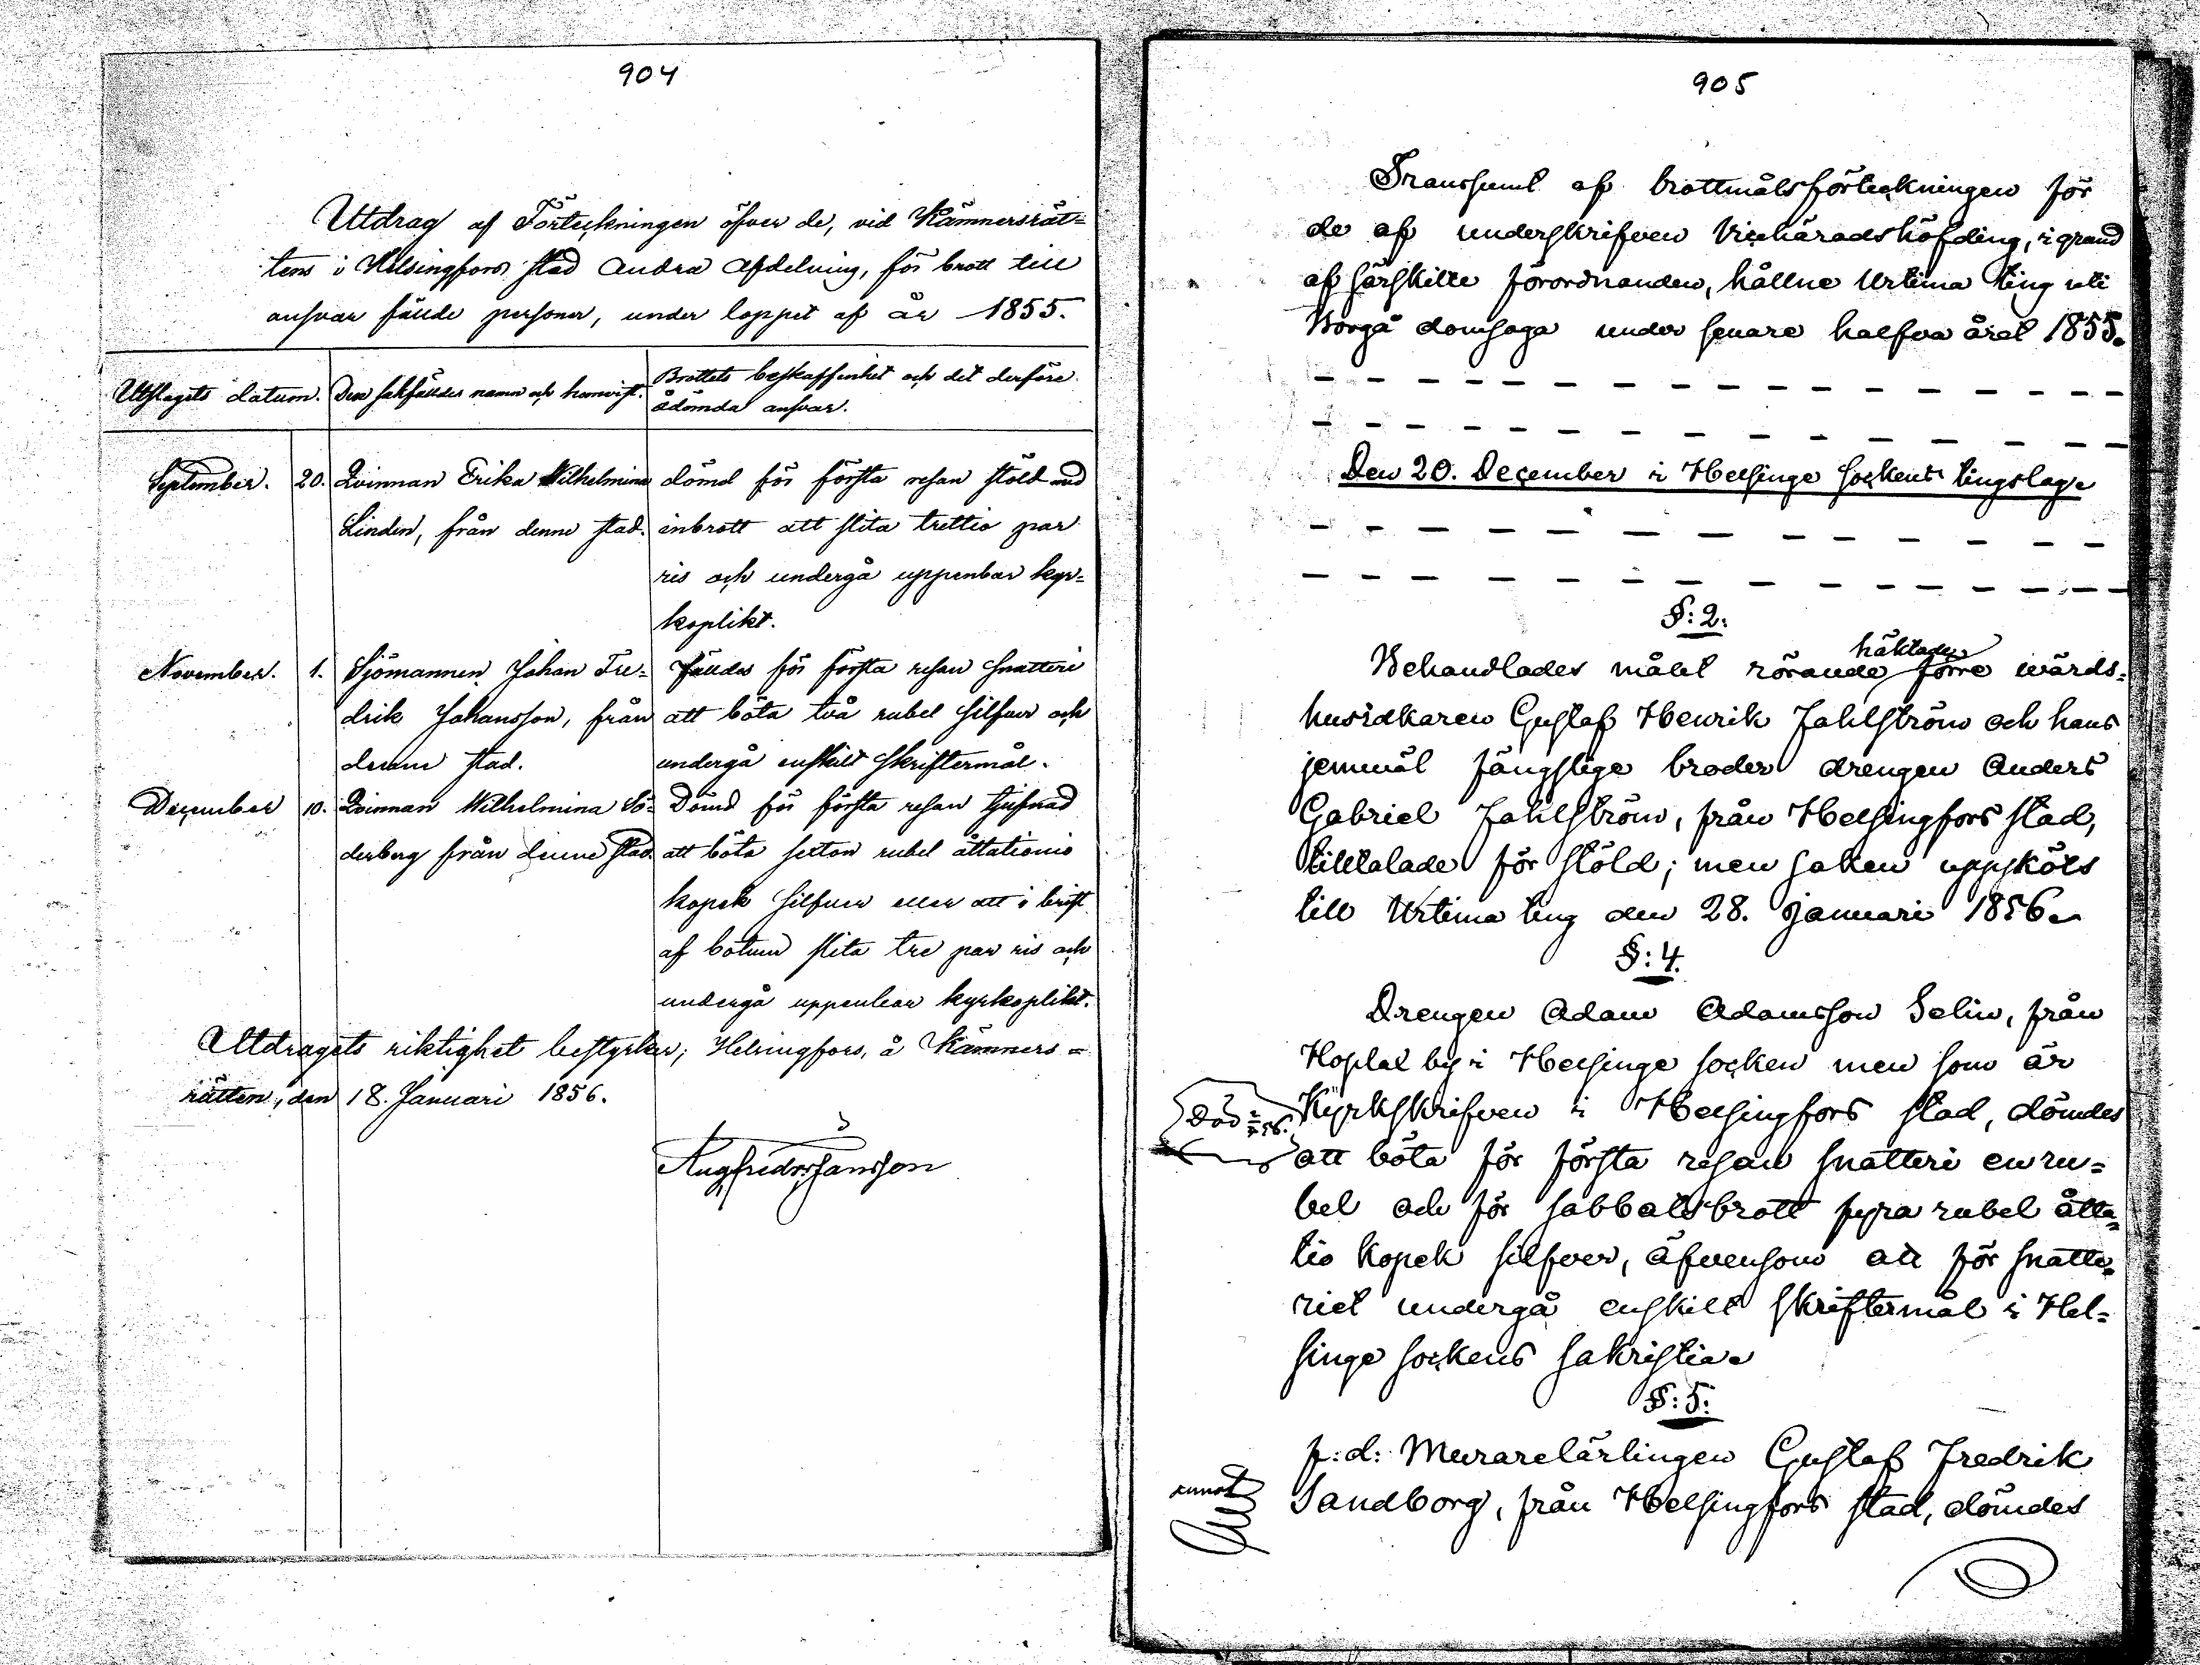 904
Utdrag af Förteckningen öfver de, vid Kämnersrät=
tens i Helsingfors stad Andra Afdelning, för brott till
ansvar fällde personer, under loppet af år 1855.
Utslagets datum. Den sakfälldes namn och hemvist. Brottets beskaffenhet och det derföre
ådömda ansvar.
September. 20. Qvinnan Erika Wilhelmina dömd för första resan stöld med
Linden, från denne stad. inbrott att slita trettio par
ris och undergå uppenbar kyr=
koplikt.
November. 1. Sjömannen Johan Fre= Fälldes för första resan snatteri
drik Johansson, från att böta två rubel silfver och
denne stad. undergå enskilt skriftermål.
December 10. Qvinnan Wilhelmina Sö= Dömd för första resan tjufnad
derberg från denne stad. att böta sexton rubel åttationio
kopek silfver eller att i brist
af bötum slita tre par ris och
undergå uppenbar kyrkoplikt.
Utdragets riktighet bestyrker; Helsingfors, å Kämners=
rätten, den 18. Januari 1856.
905
Transsumt af brottmålsförteckningen för
de af underskrifven Vicehäradshöfding, i grund
af särskilte förordnanden, hållne Urtima ting uti
Borgå domsaga under senare halfva året 1855.
Den 20. December i Helsinge sockens tingslag.
§: 2.
häktade
Behandlades målet rörande förre wärds=
husidkaren Gustaf Henrik Fahlström och hans
jemväl fängslige broder drengen Anders
Gabriel Fahlström, från Helsingfors stad,
tilltalade för stöld; men saken uppsköts
till Urtima ting den 28. Januari 1856.
§: 4.
Drengen Adam Adamsson Selin, från
Hoplax by i Helsinge socken men som är
Död
Kyrkskrifven i Helsingfors stad, dömdes
att böta för första resan snatteri en ru=
bel och för sabbatsbrott fyra rubel åtta=
tio kopek silfver, äfvensom att för snatte=
riet undergå enskilt skriftermål i Hel=
singe sockens sakristia.
§: 5.
f: d: Murarelärlingen Gustaf Fredrik
Sandborg, från Helsingfors stad, dömdes